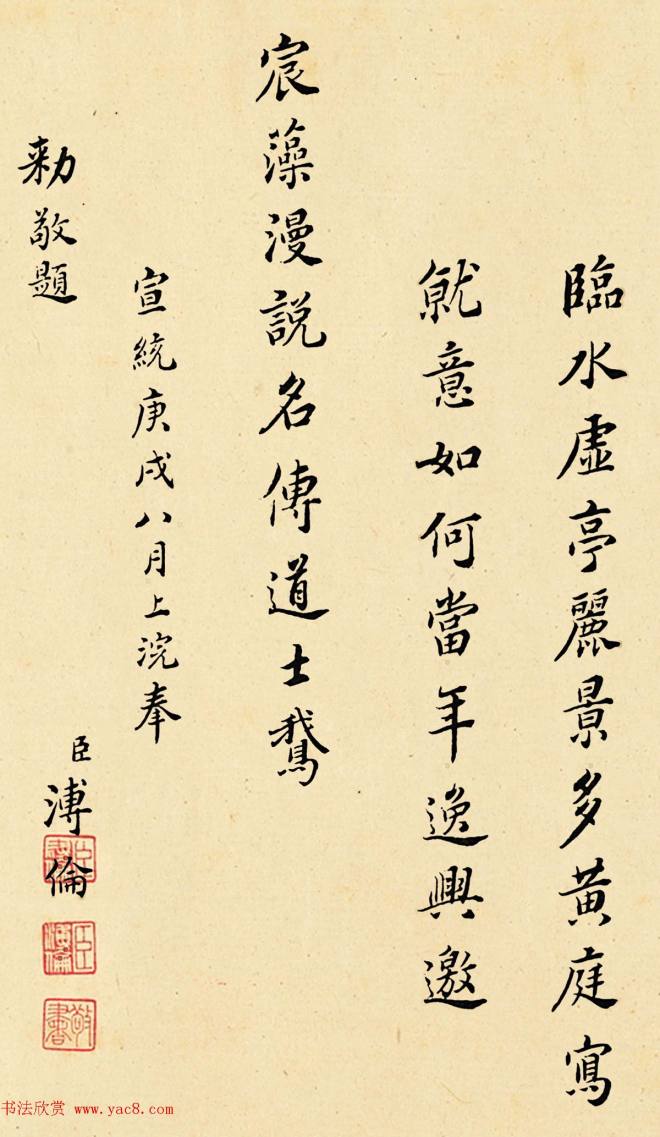 臨水虛亭麗景多黃庭寫
就意如何當年逸興邀
宸藻漫說名傳道士鵞
宣統庚戌八月上浣奉
勅敬題
臣溥倫
臣
敬書
书法欣赏 www.yac8.com